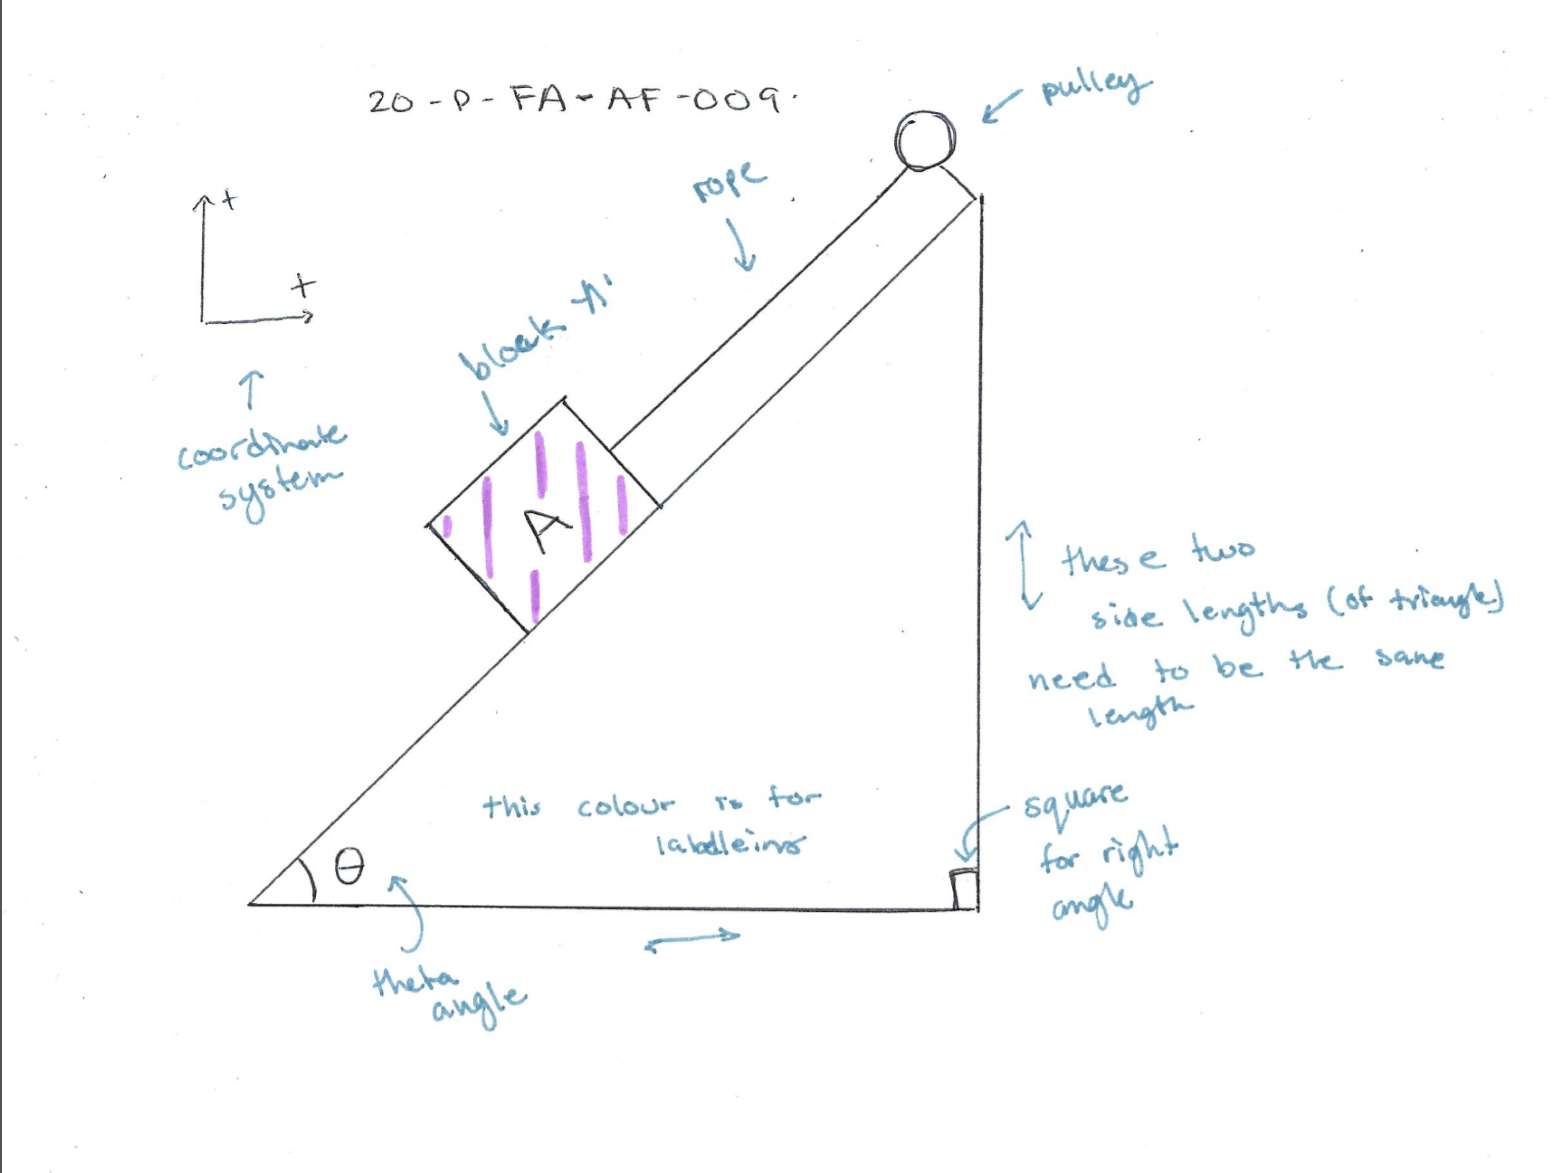 20-P-FA-AF-009.
pulley
rope
+
+
block 'A'
coordinate
system
A
these two
side lengths (of triangle)
need to be the same
length
this colour is for
square
for right
angle
θ
theta
angle